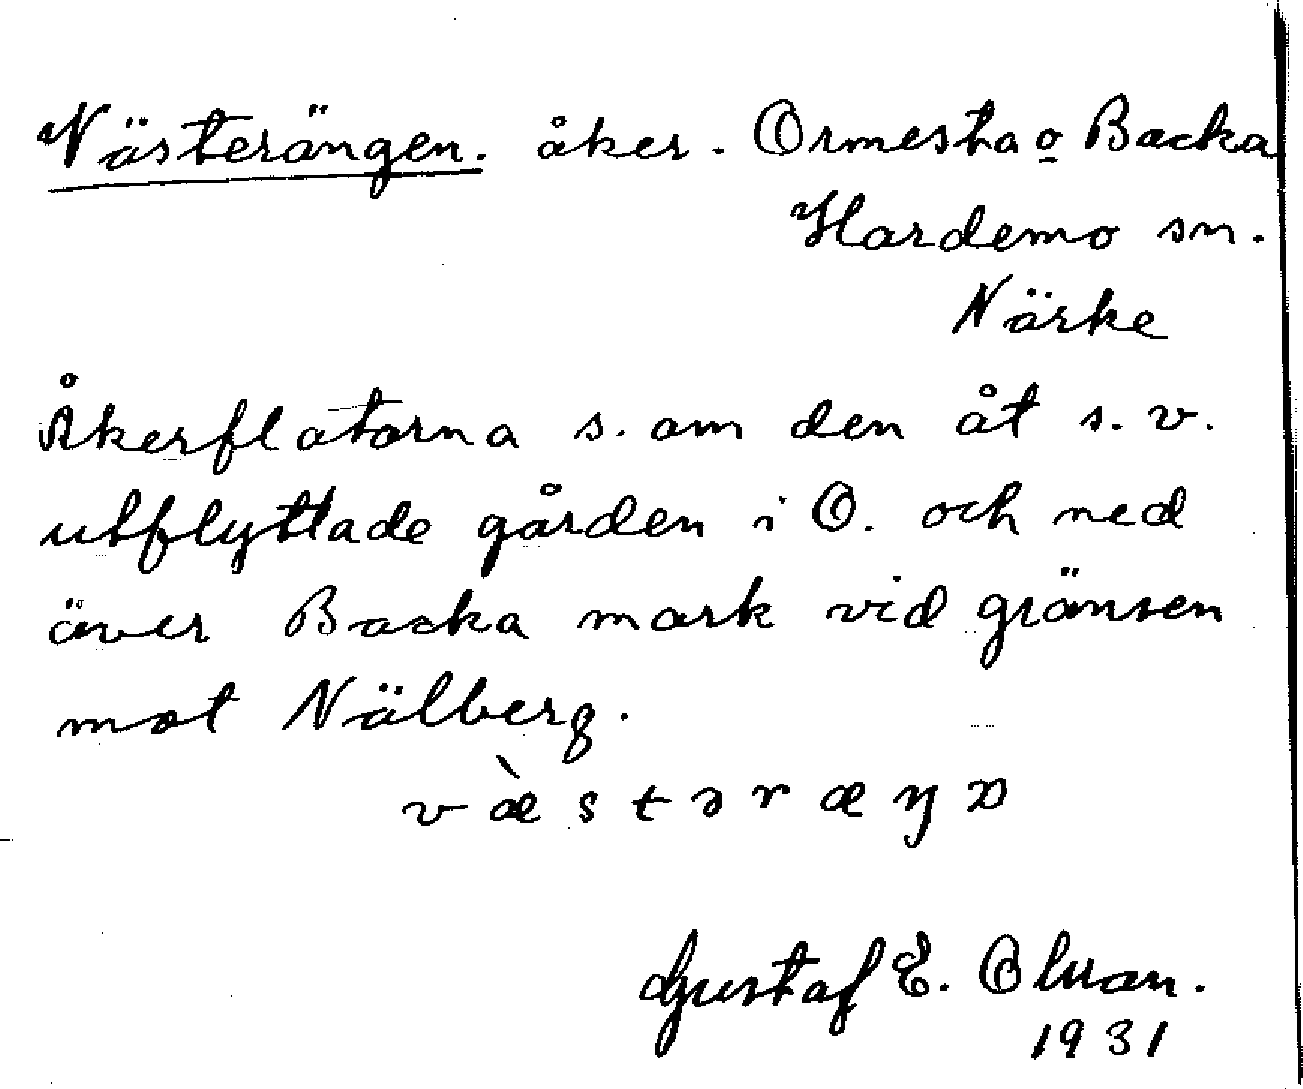 Västerängen. åker. Ormesta o Backa
Hardemo sn.
Närke
Åkerflatorna s. om den åt s.v.
utflyttade gården i O. och ned
över Backa mark vid gränsen
mot Välberg.
væ̀stəræŋɒ
Gustaf E. Olson.
1931